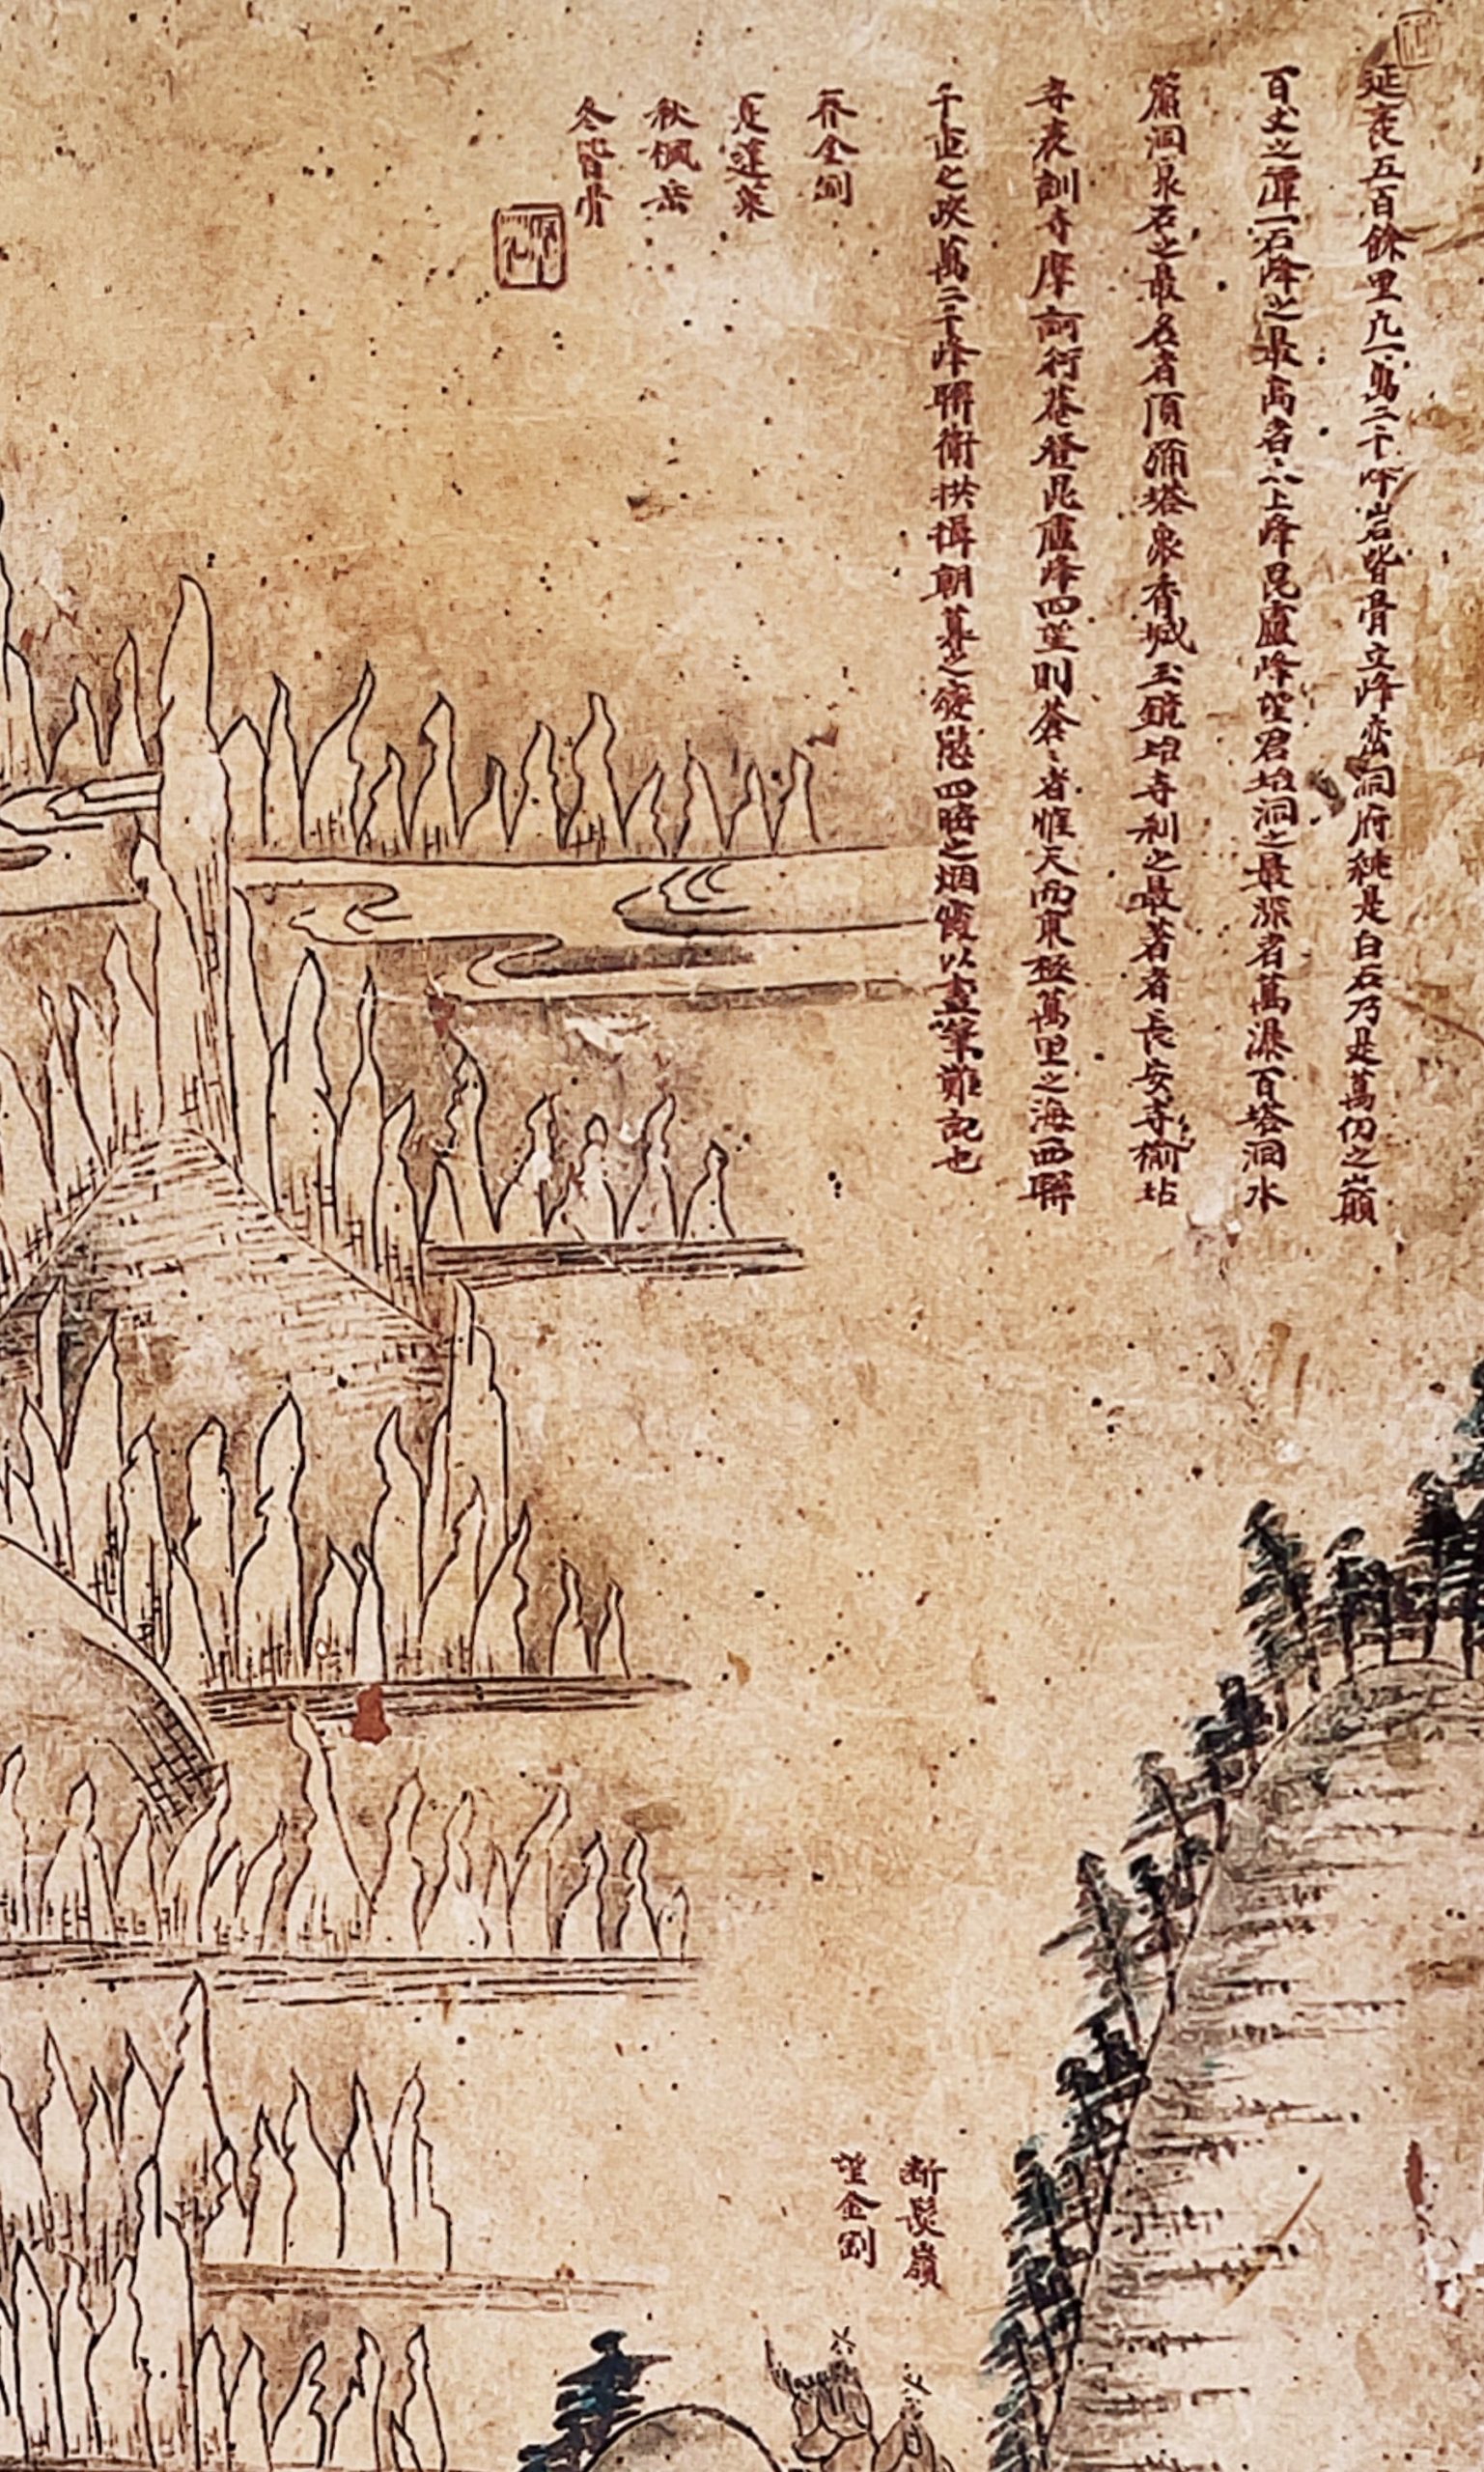 延袤五百餘里凡一萬二千峰岩皆骨立峰巒洞府純是白石乃是萬仞之巔
百丈之潭一石峰之最高者亦上峰昆盧峰望君坮洞之最深者萬瀑百塔洞水
簾洞泉石之最名者須彌塔衆香城玉鏡坮寺利之最著者長安寺楡岾
寺表訓寺摩訶衍菴登昆盧峰四望則蒼〻者惟天而東極萬里之海西聯
千疋之 萬二千峰聯衛拱揖朝暮之變態四時之烟霞以畵筆難記也
春金剛
夏蓬萊
秋楓岳
冬皆骨
断髮嶺
望金剛